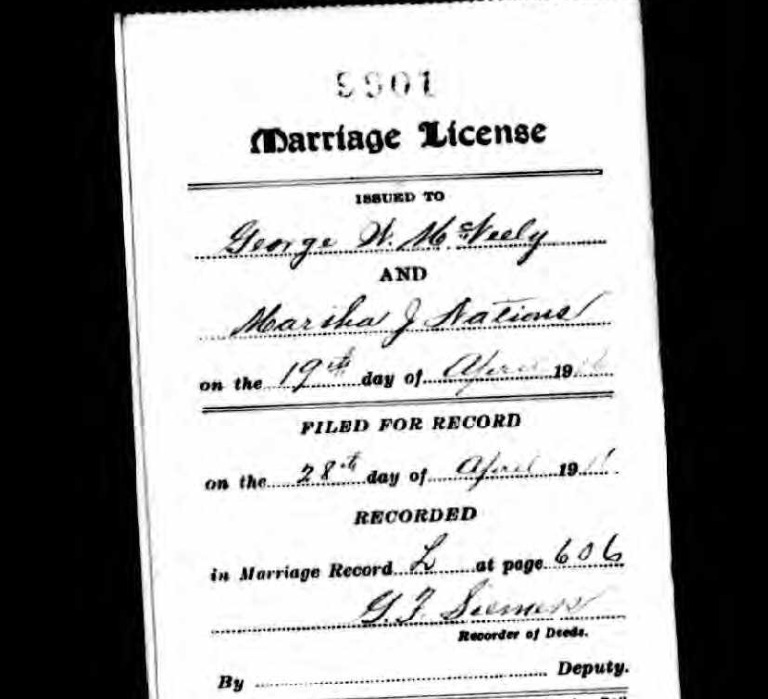 9901
Marriage License
ISSUED TO
George W. McNeely
AND
Martha J Nations
on the 19th day of April 19
FILED FOR RECORD
on the 28th day of April 19
RECORDED
in Marriage Record L at page 606
G. F. Siemers
Recorder of Deeds.
By Deputy.